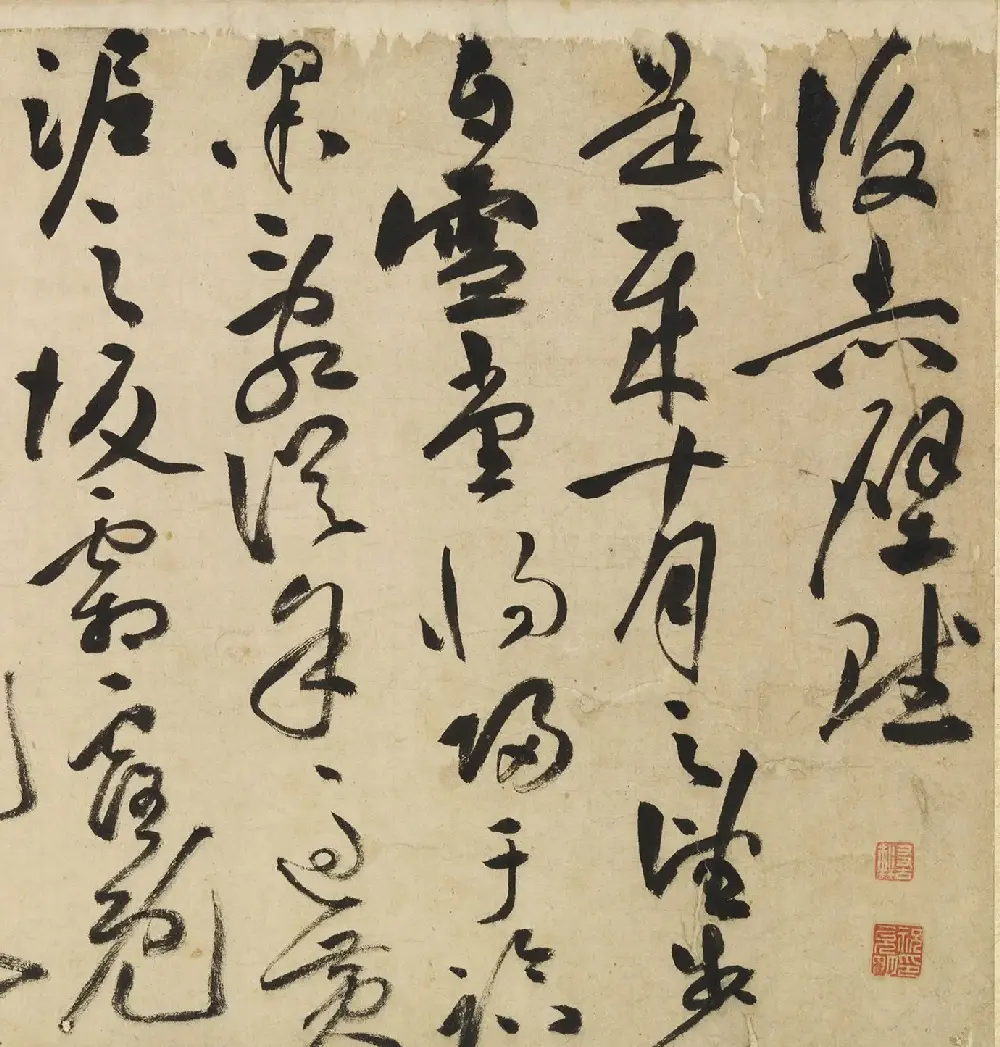 後赤壁賦
是歲十月之望步
自雪堂將歸于臨
皋二客從余過黃
泥之坂霜露既